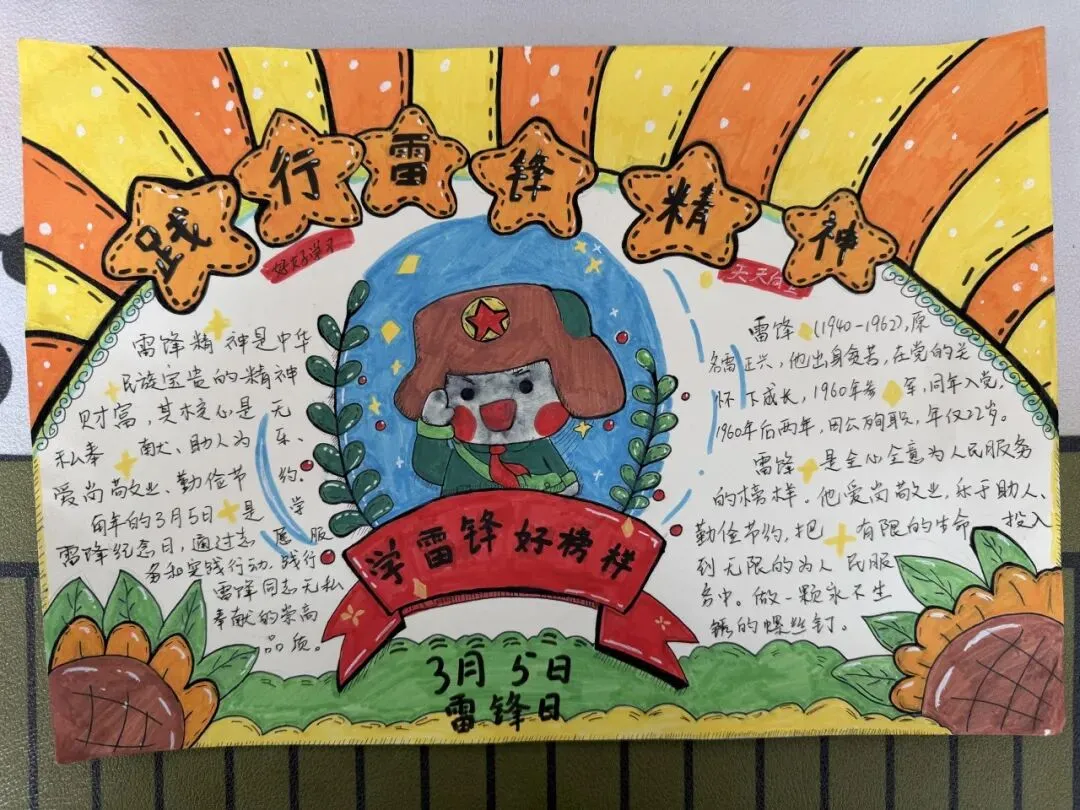 践行雷锋精神
好好学习
天天向上
雷锋精神是中华
民族宝贵的精神
财富，其核心是无
私奉献、助人为乐、
爱岗敬业、勤俭节约。
每年的3月5日是学
雷锋纪念日，通过志愿服
务和实践行动，践行
雷锋同志无私
奉献的崇高
品质。
雷锋（1940-1962），原
名雷正兴，他出身贫苦，在党的关
怀下成长，1960年参军，同年入党，
1960年后两年，因公殉职，年仅22岁。
雷锋是全心全意为人民服务
的榜样。他爱岗敬业、乐于助人、
勤俭节约，把有限的生命投入
到无限的为人民服
务中。做一颗永不生
锈的螺丝钉。
学雷锋好榜样
3月5日
雷锋日